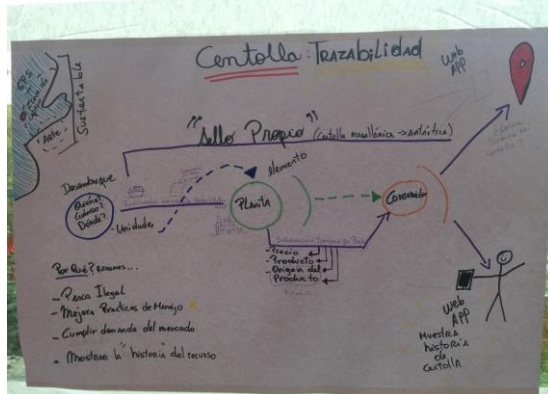 Centolla: TRAZABILIDAD
GPS
"Arte"
Sustentable
WEB
APP
"Sello Propio" (Centolla magallánica -> Antártica)
Desembarque
¿Quién?
¿Cuánto?
¿Dónde?
Unidades
elemento
PLANTA
Consumidor
- Precio
- Producto
- Origen del
Producto
Por Qué? Razones...
- Pesca Ilegal
- Mejora Practicas de Manejo
- Cumplir demanda del mercado
- Mostrar la "historia" del recurso
WEB
APP
MUESTRA
historia
de
CENTOLLA